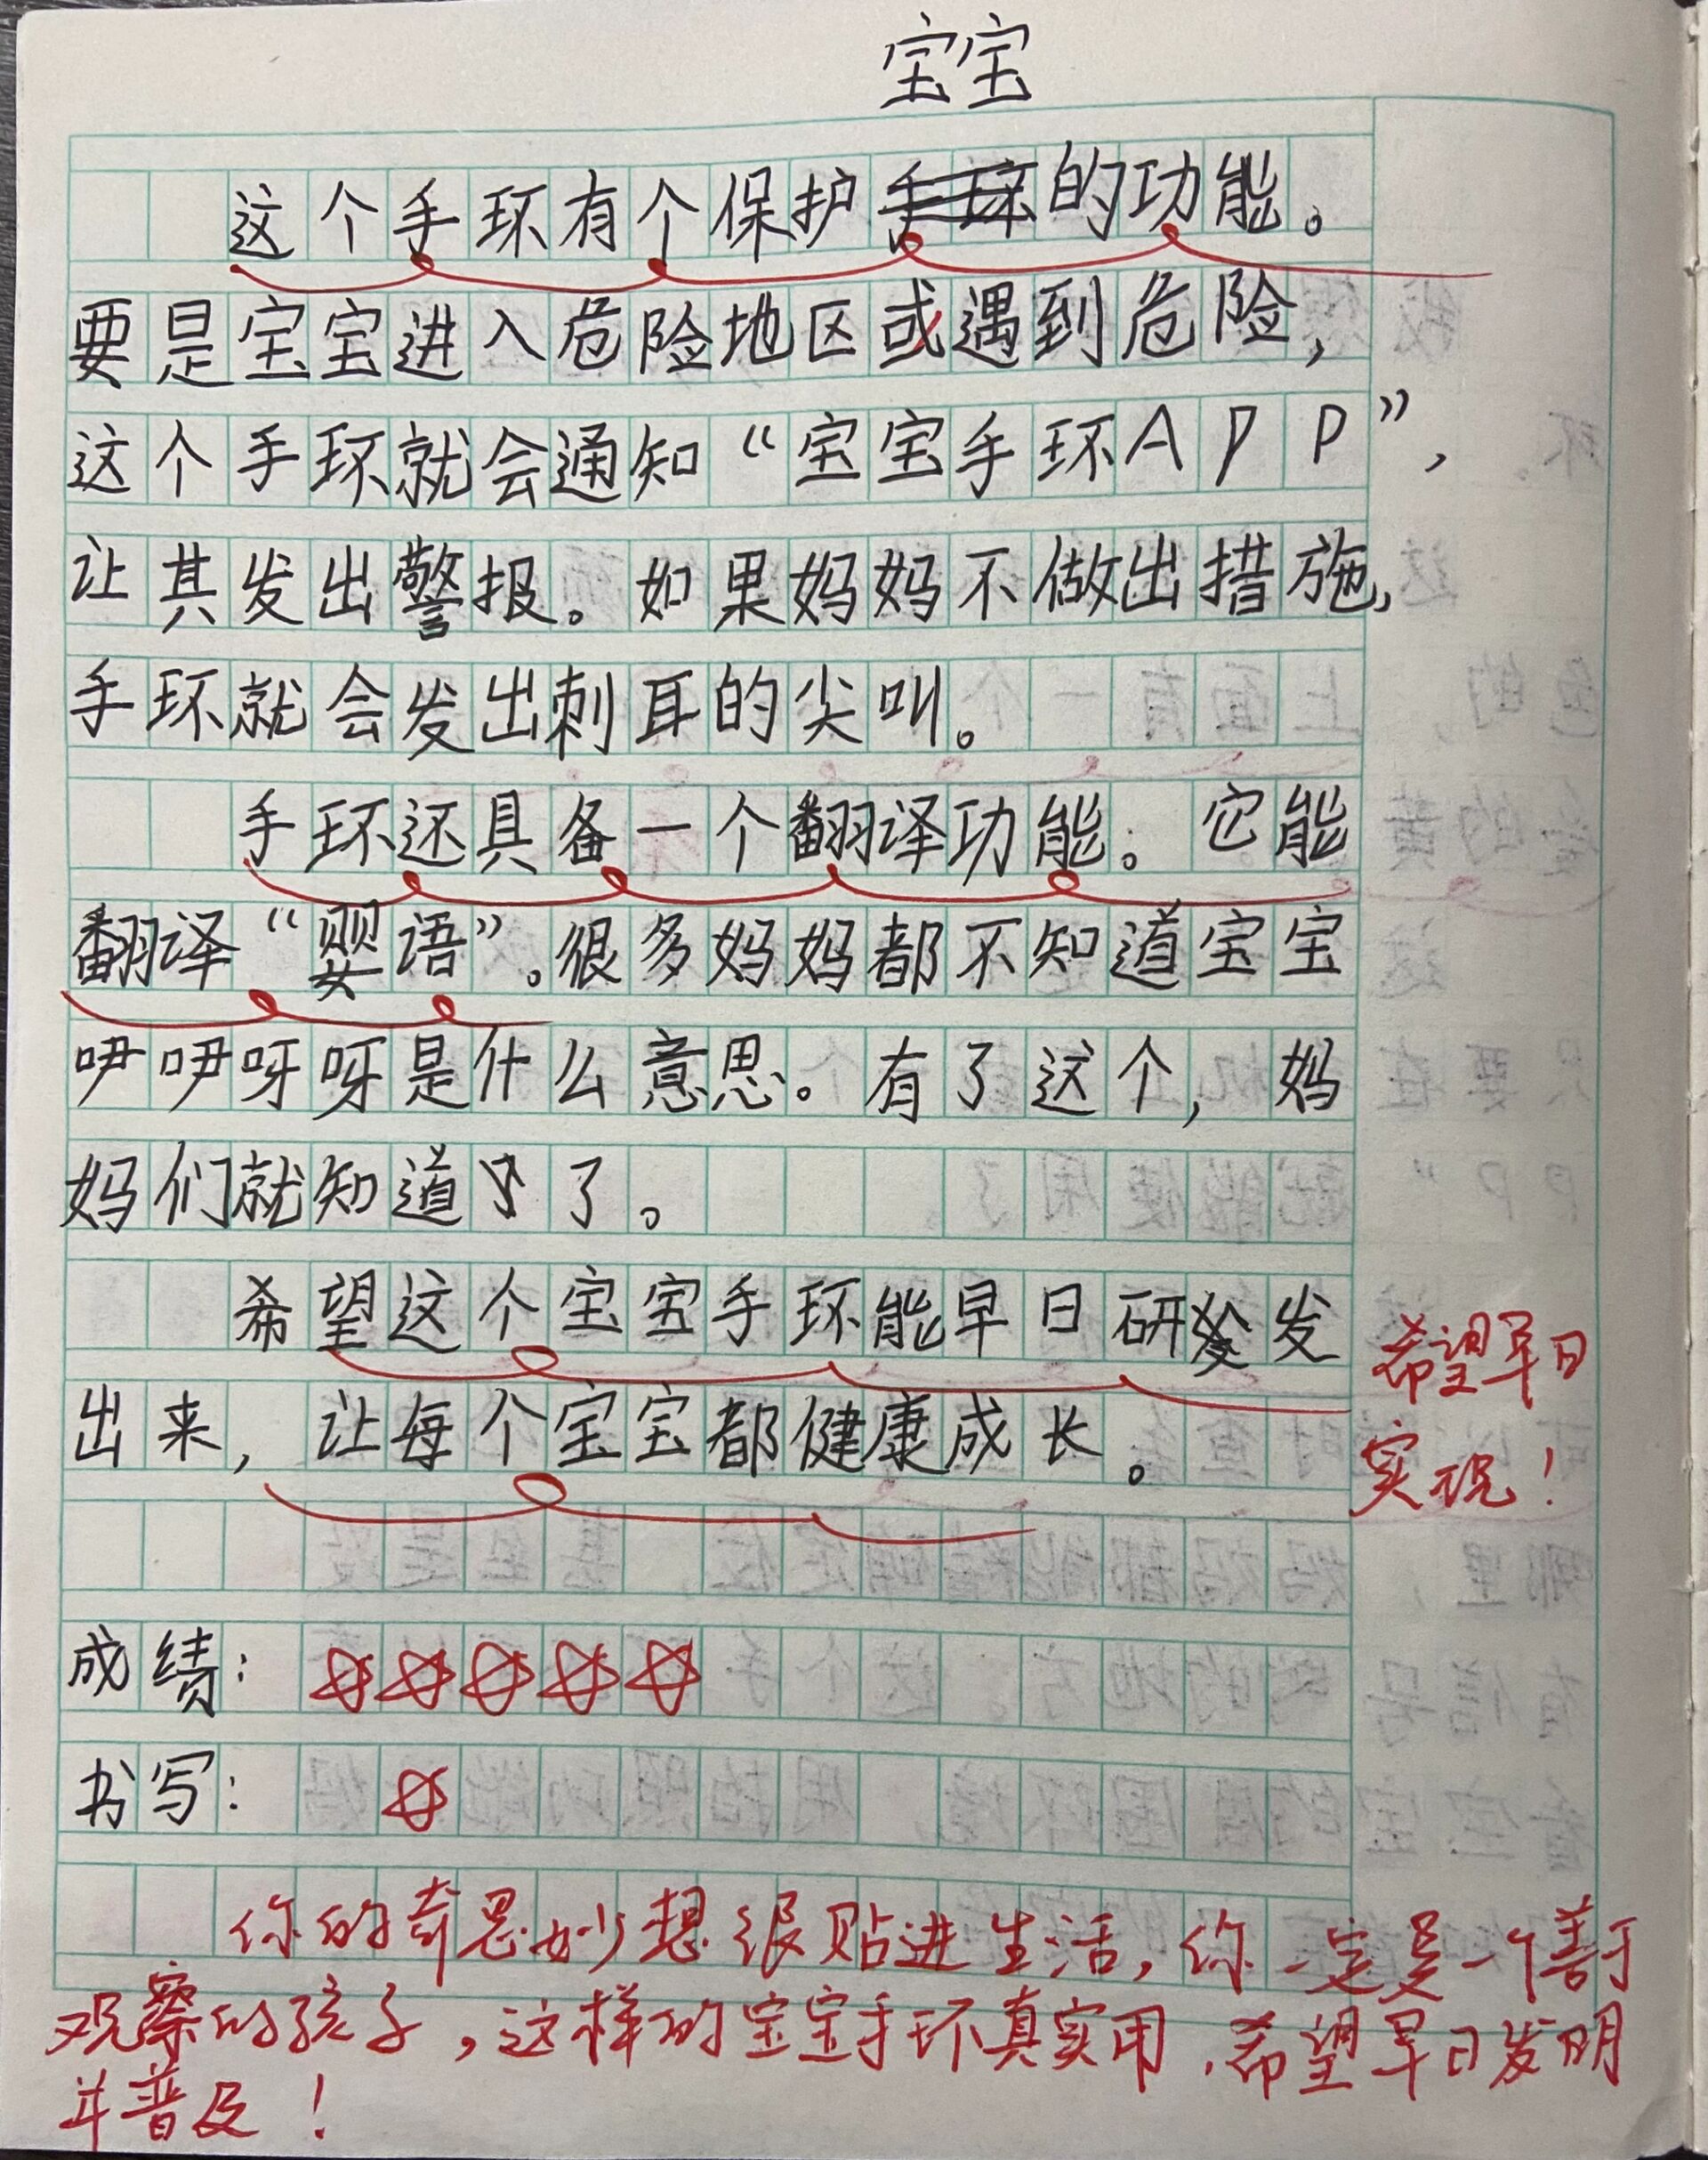 宝宝
这个手环有个保护的功能。
要是宝宝进入危险地区或遇到危险，
这个手环就会通知“宝宝手环APP”，
让其发出警报。如果妈妈不做出措施，
手环就会发出刺耳的尖叫。
手环还具备一个翻译功能。它能
翻译“婴语”。很多妈妈都不知道宝宝
咿咿呀呀是什么意思。有了这个，妈
妈们就知道了。
希望这个宝宝手环能早日研发
出来，让每个宝宝都健康成长。
希望早日
实现！
成绩：☆☆☆☆☆
书写：☆
你的奇思妙想很贴进生活，你一定是一个善于
观察的孩子，这样的宝宝手环真实用，希望早日发明
并普及！